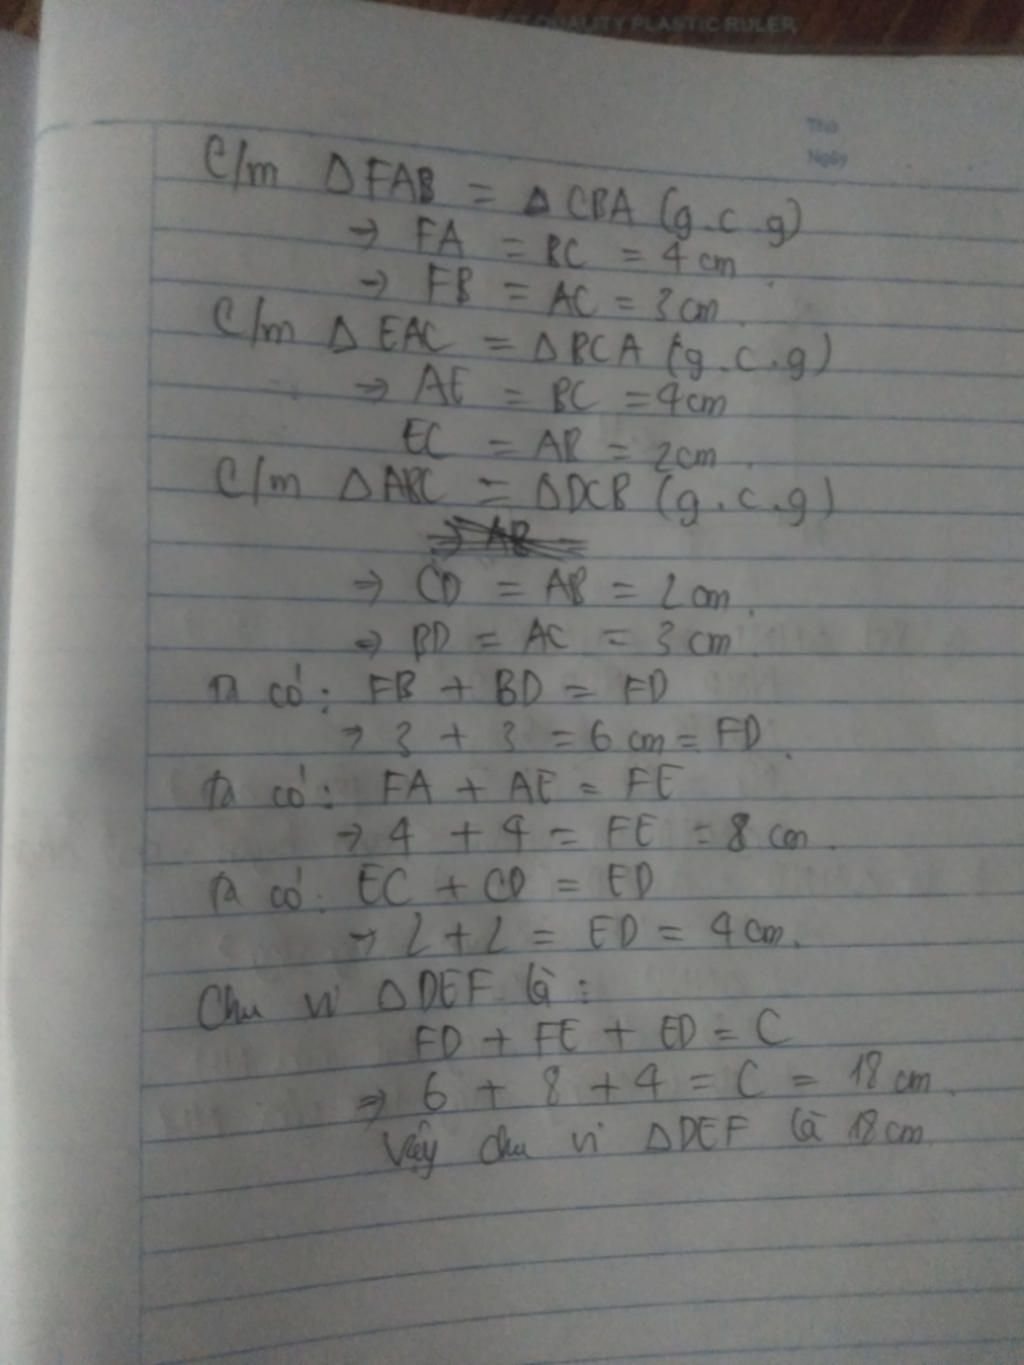 EST QUALITY PLASTIC RULER
Thứ
Ngày
C/m ΔFAB = ΔCBA (g.c.g)
→ FA = BC = 4 cm
→ FB = AC = 3 cm.
C/m ΔEAC = ΔBCA (g.c.g)
→ AE = BC = 4 cm
EC = AB = 2 cm.
C/m ΔABC = ΔDCB (g.c.g)
→ CD = AB = 2 cm.
→ BD = AC = 3 cm
Ta có: FB + BD = FD
→ 3 + 3 = 6 cm = FD.
Ta có: FA + AE = FE
→ 4 + 4 = FE = 8 cm.
Ta có: EC + CD = ED
→ 2 + 2 = ED = 4 cm.
Chu vi ΔDEF là:
FD + FE + ED = C
⇒ 6 + 8 + 4 = C = 18 cm.
Vậy chu vi ΔDEF là 18 cm